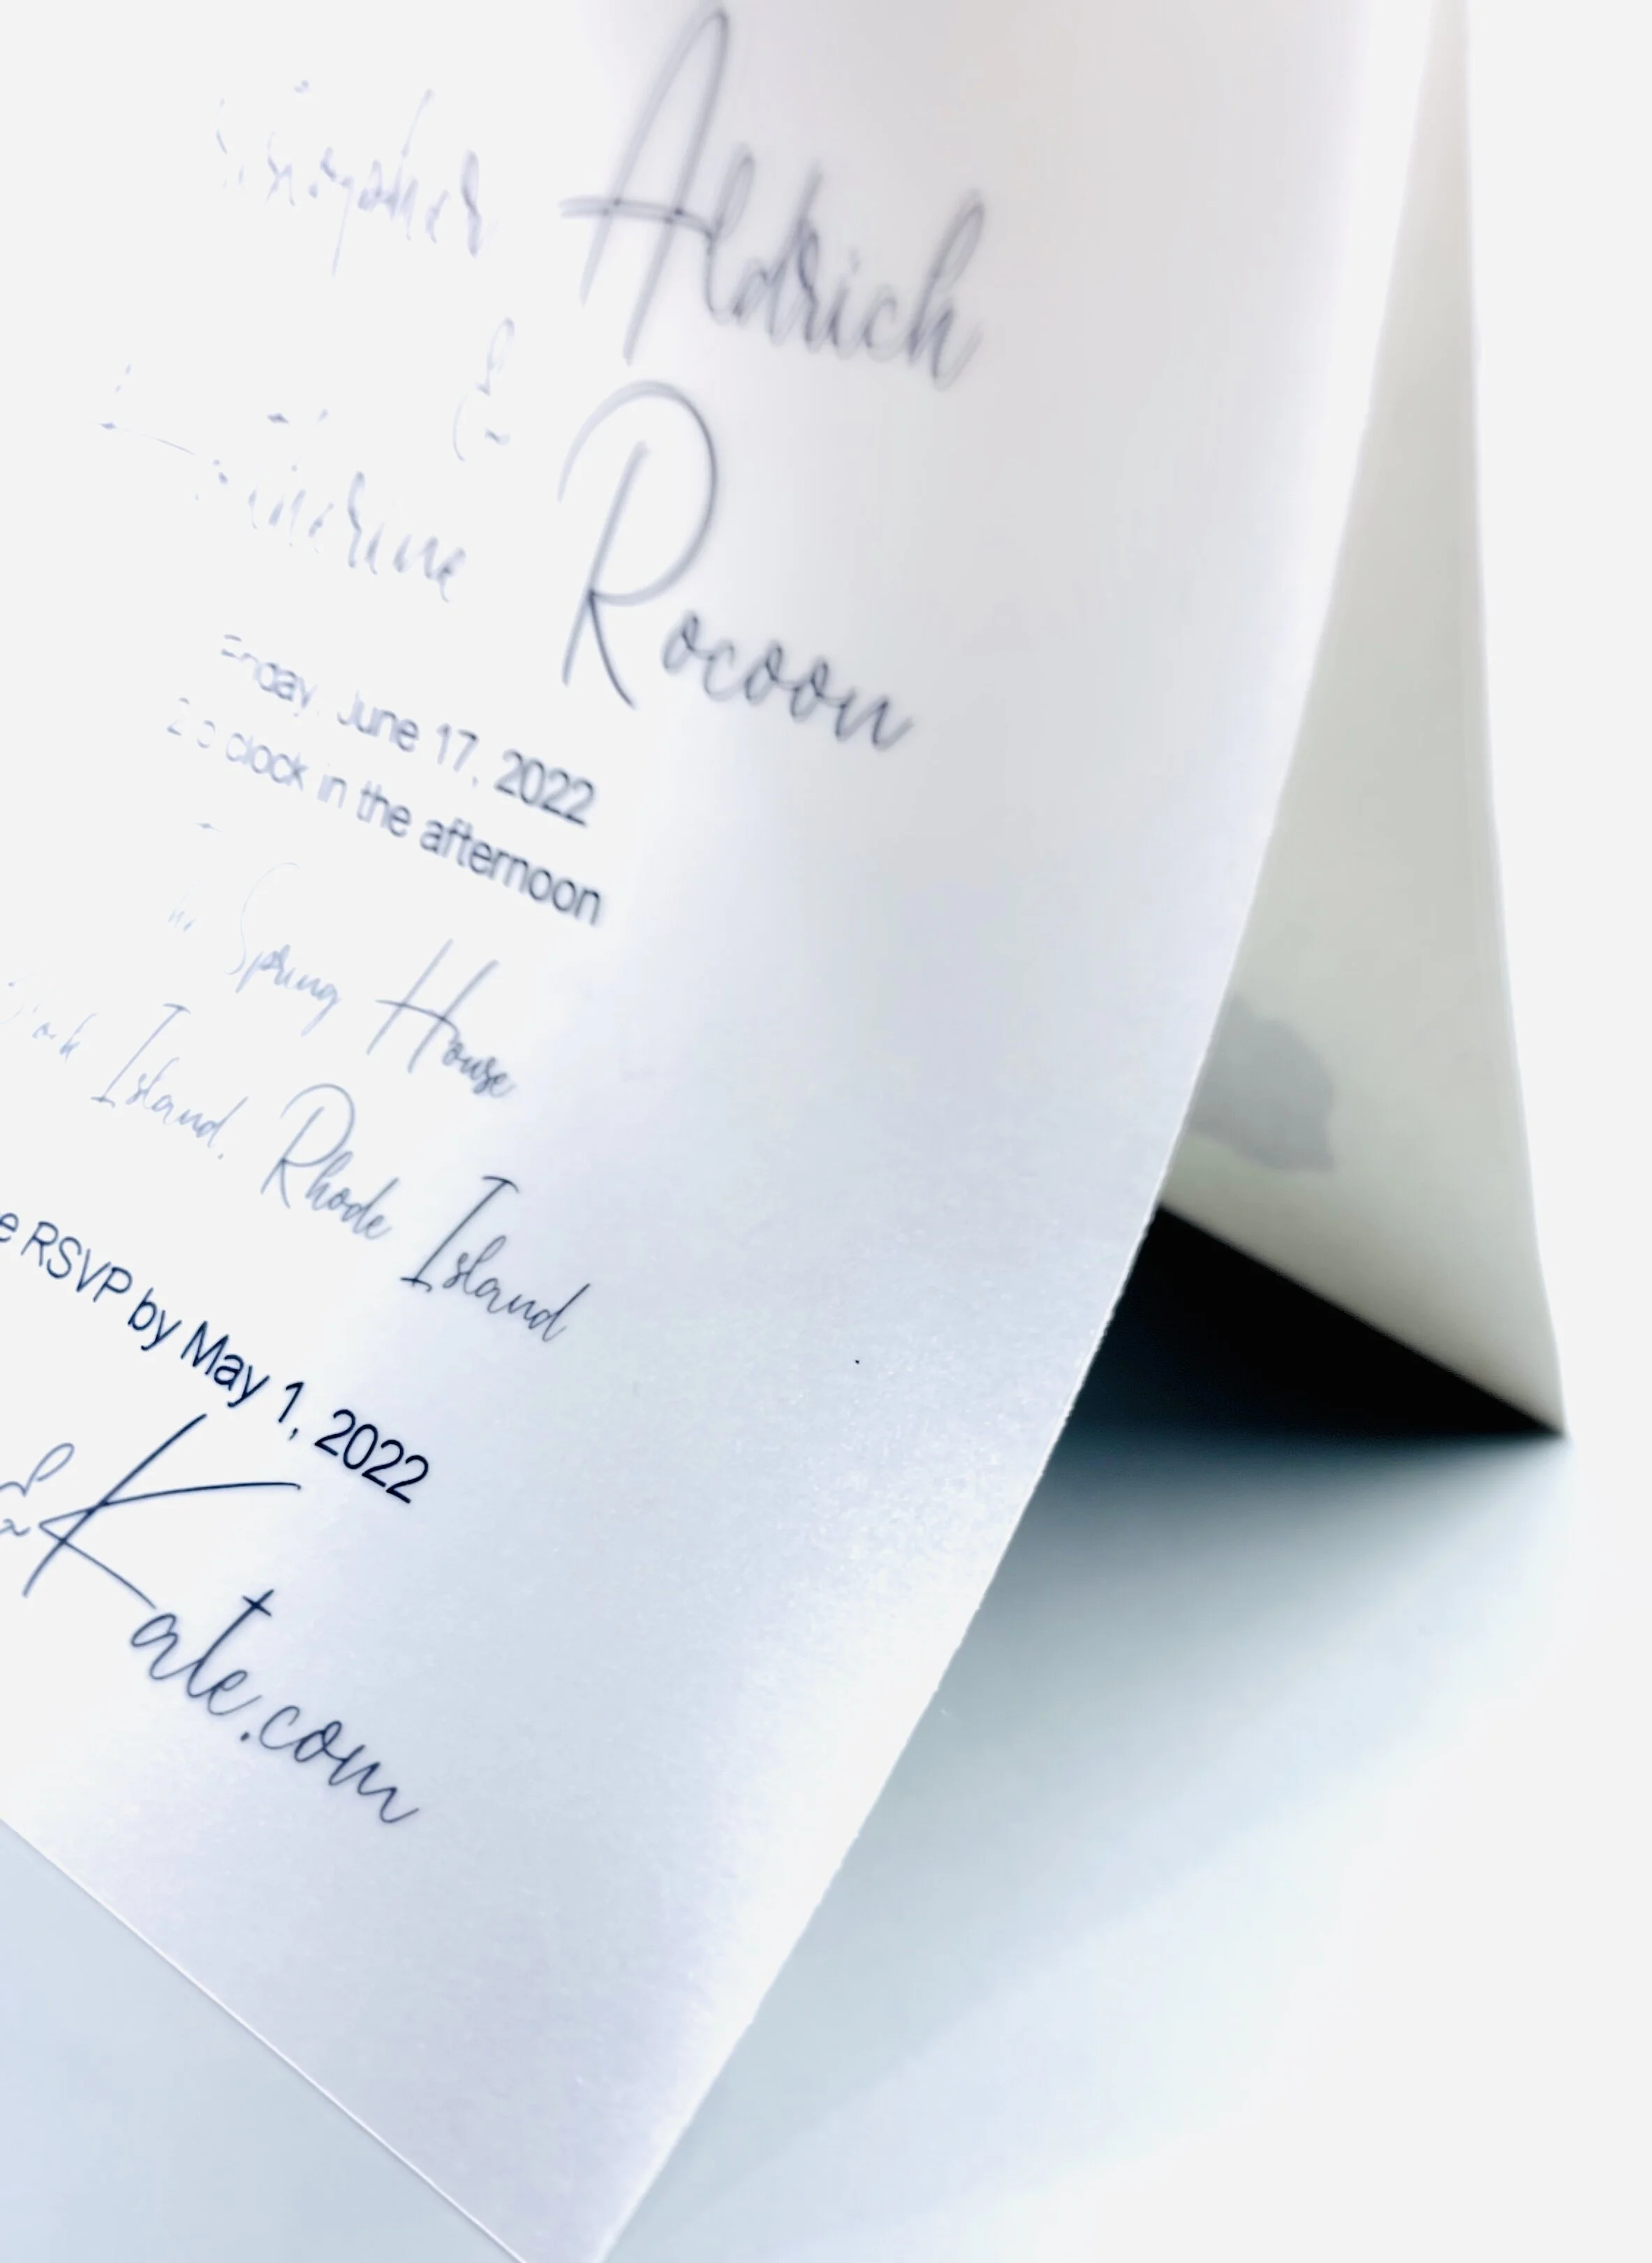 Christopher Aldrich
&
Katherine Rocoon
Friday, June 17, 2022
2 o'clock in the afternoon
The Spring House
Block Island, Rhode Island
RSVP by May 1, 2022
&Kate.com